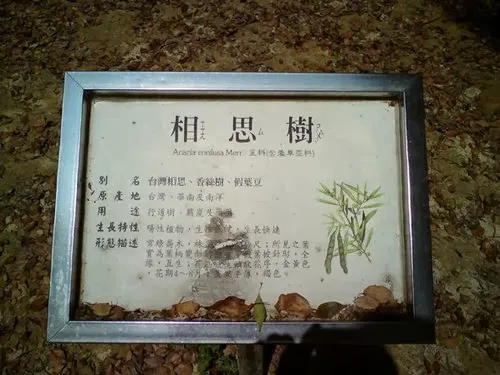 相思樹
Acacia confusa Merr. 豆科(含羞草亞科)
別名 台灣相思、香絲樹、假葉豆
原產地 台灣、華南及南洋
用途 行道樹、薪炭
生長特性 陽性植物，生 生長快速
形態描述 常綠喬木， 尺；所見之葉
實為葉柄變 披針形，全
緣，互生； 花序，金黃色
，花期4～6月， ，褐色。